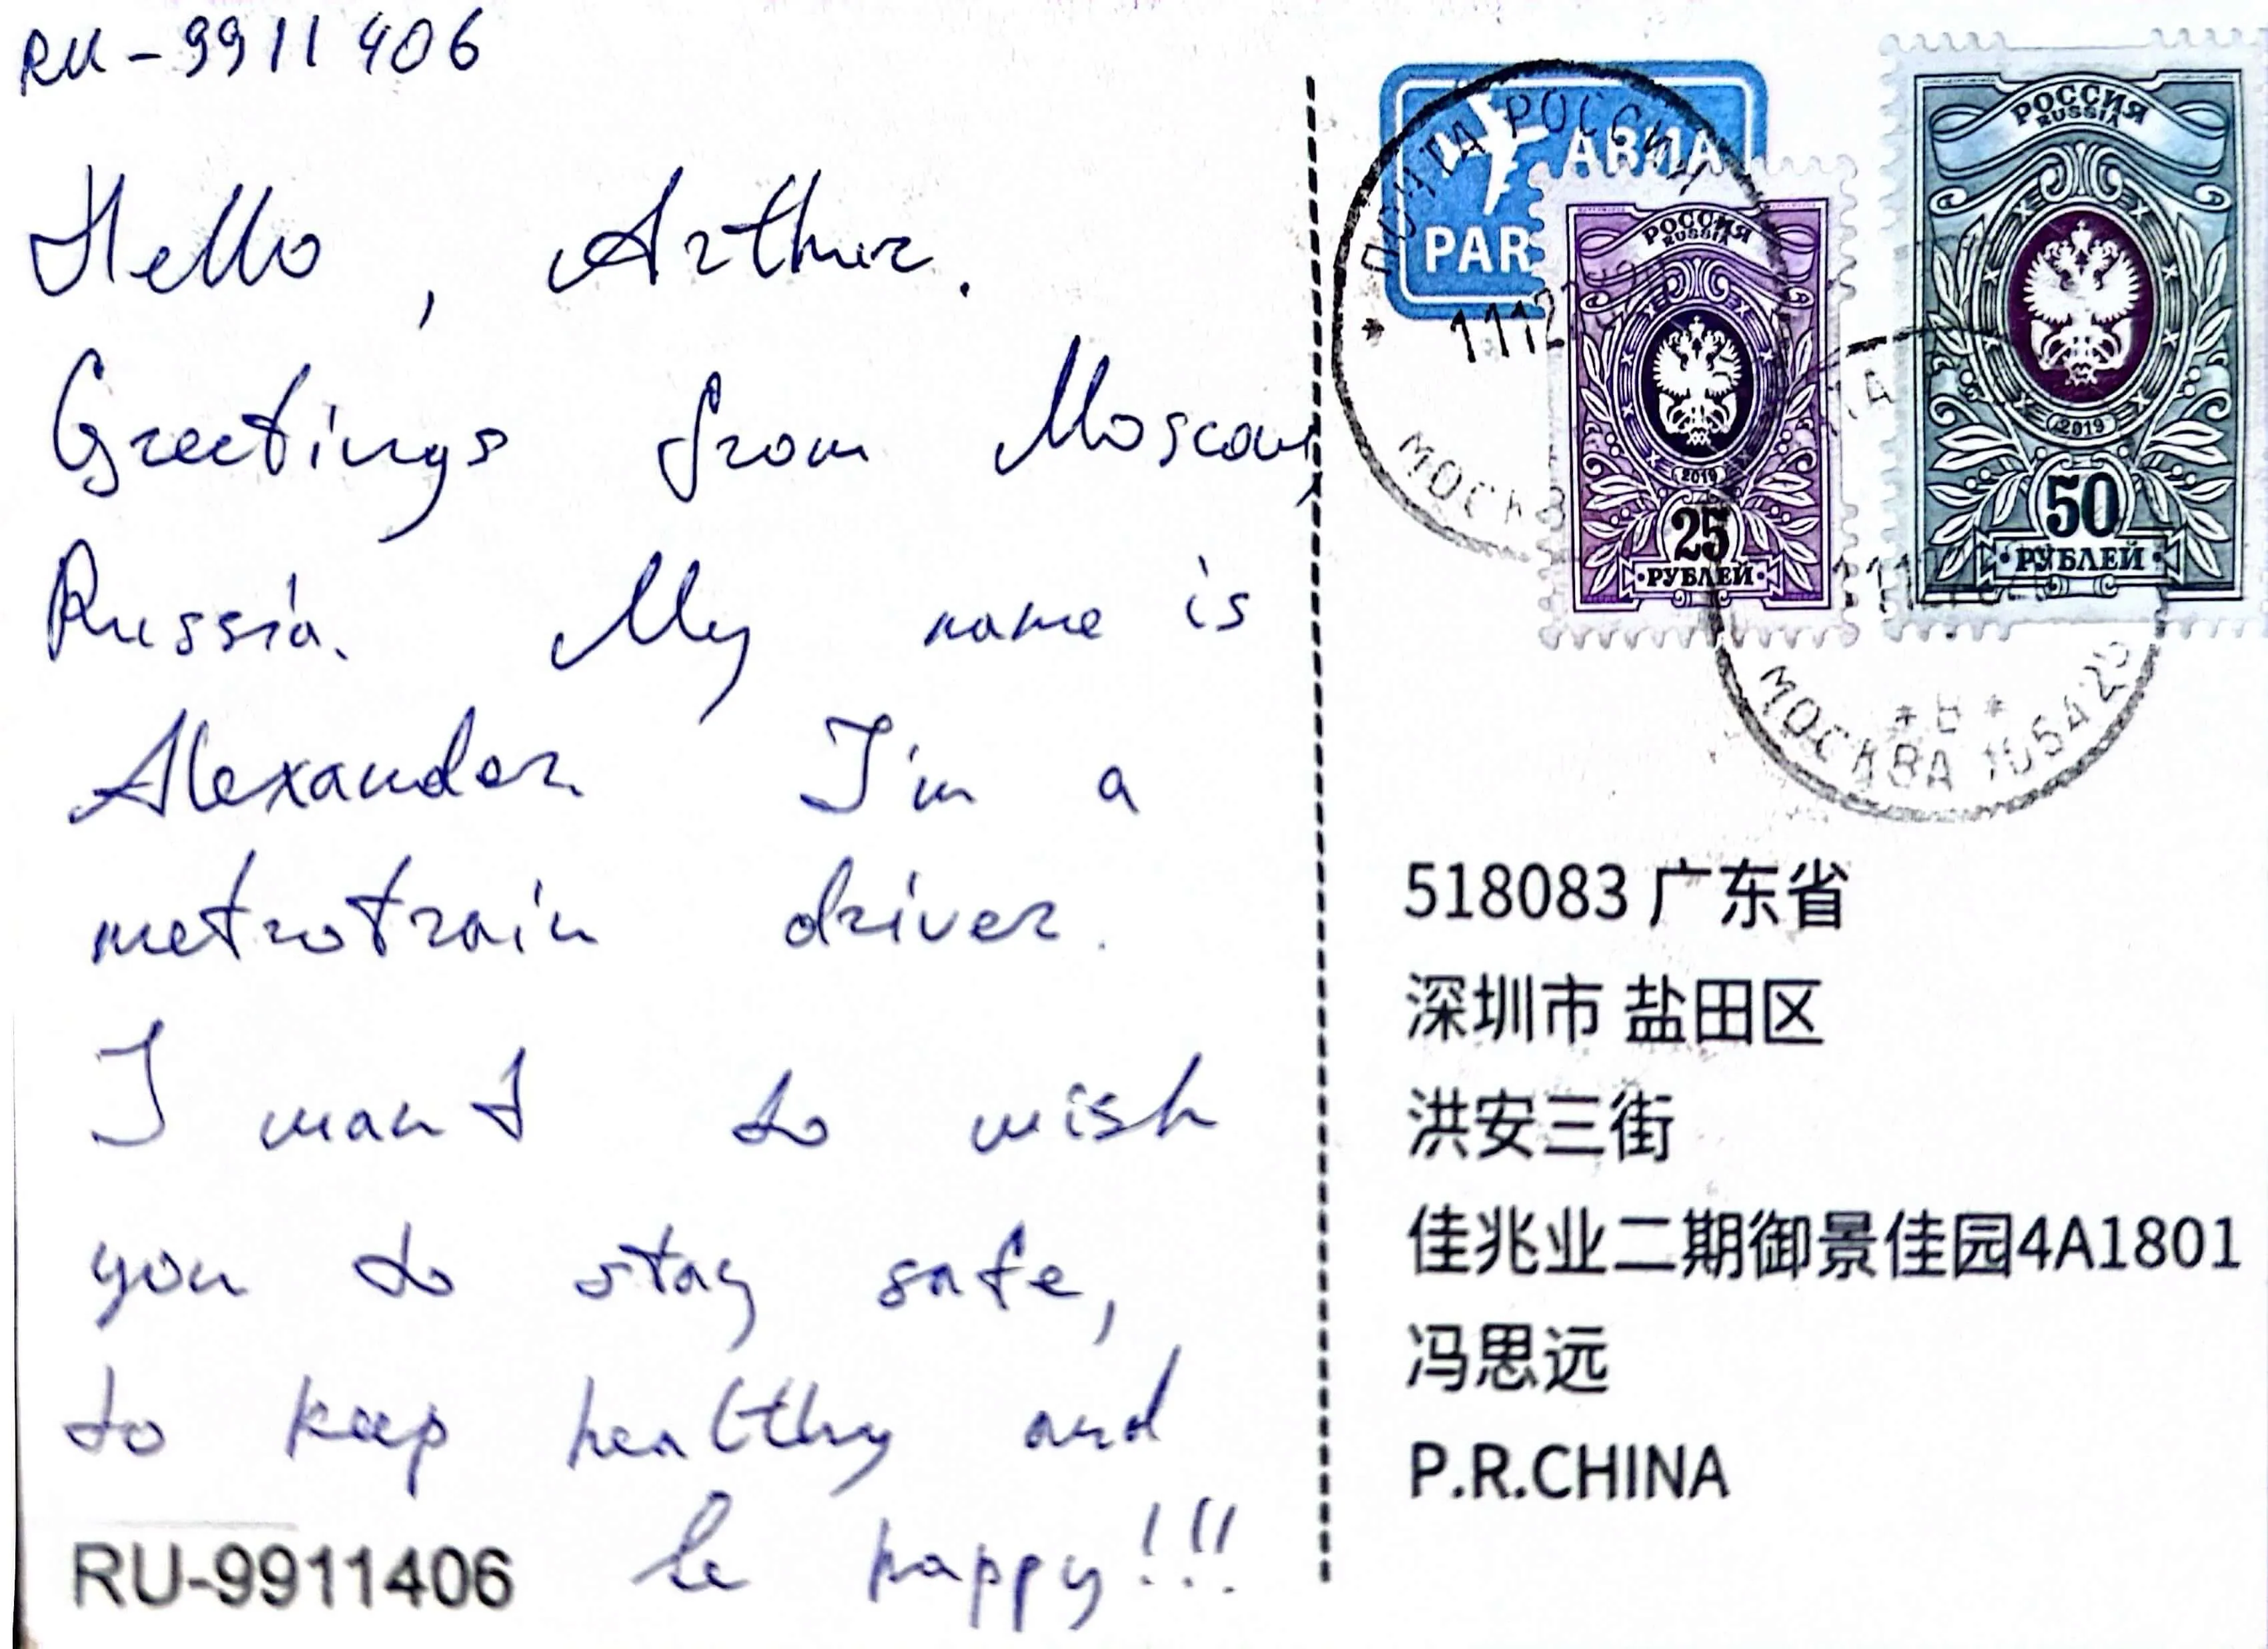 RU-9911406
Hello, Arthur.
Greetings from Moscow,
Russia. My name is
Alexander I'm a
metrotrain driver.
I want to wish
you to stay safe,
to keep healthy and
be happy!!!
RU-9911406
ПОЧТА РОССИИ
МОСКВА
PAR
РОССИЯ
RUSSIA
2019
25
РУБЛЕЙ
РОССИЯ
RUSSIA
2019
50
РУБЛЕЙ
МОСКВА 105425
518083 广东省
深圳市 盐田区
洪安三街
佳兆业二期御景佳园4A1801
冯思远
P.R.CHINA